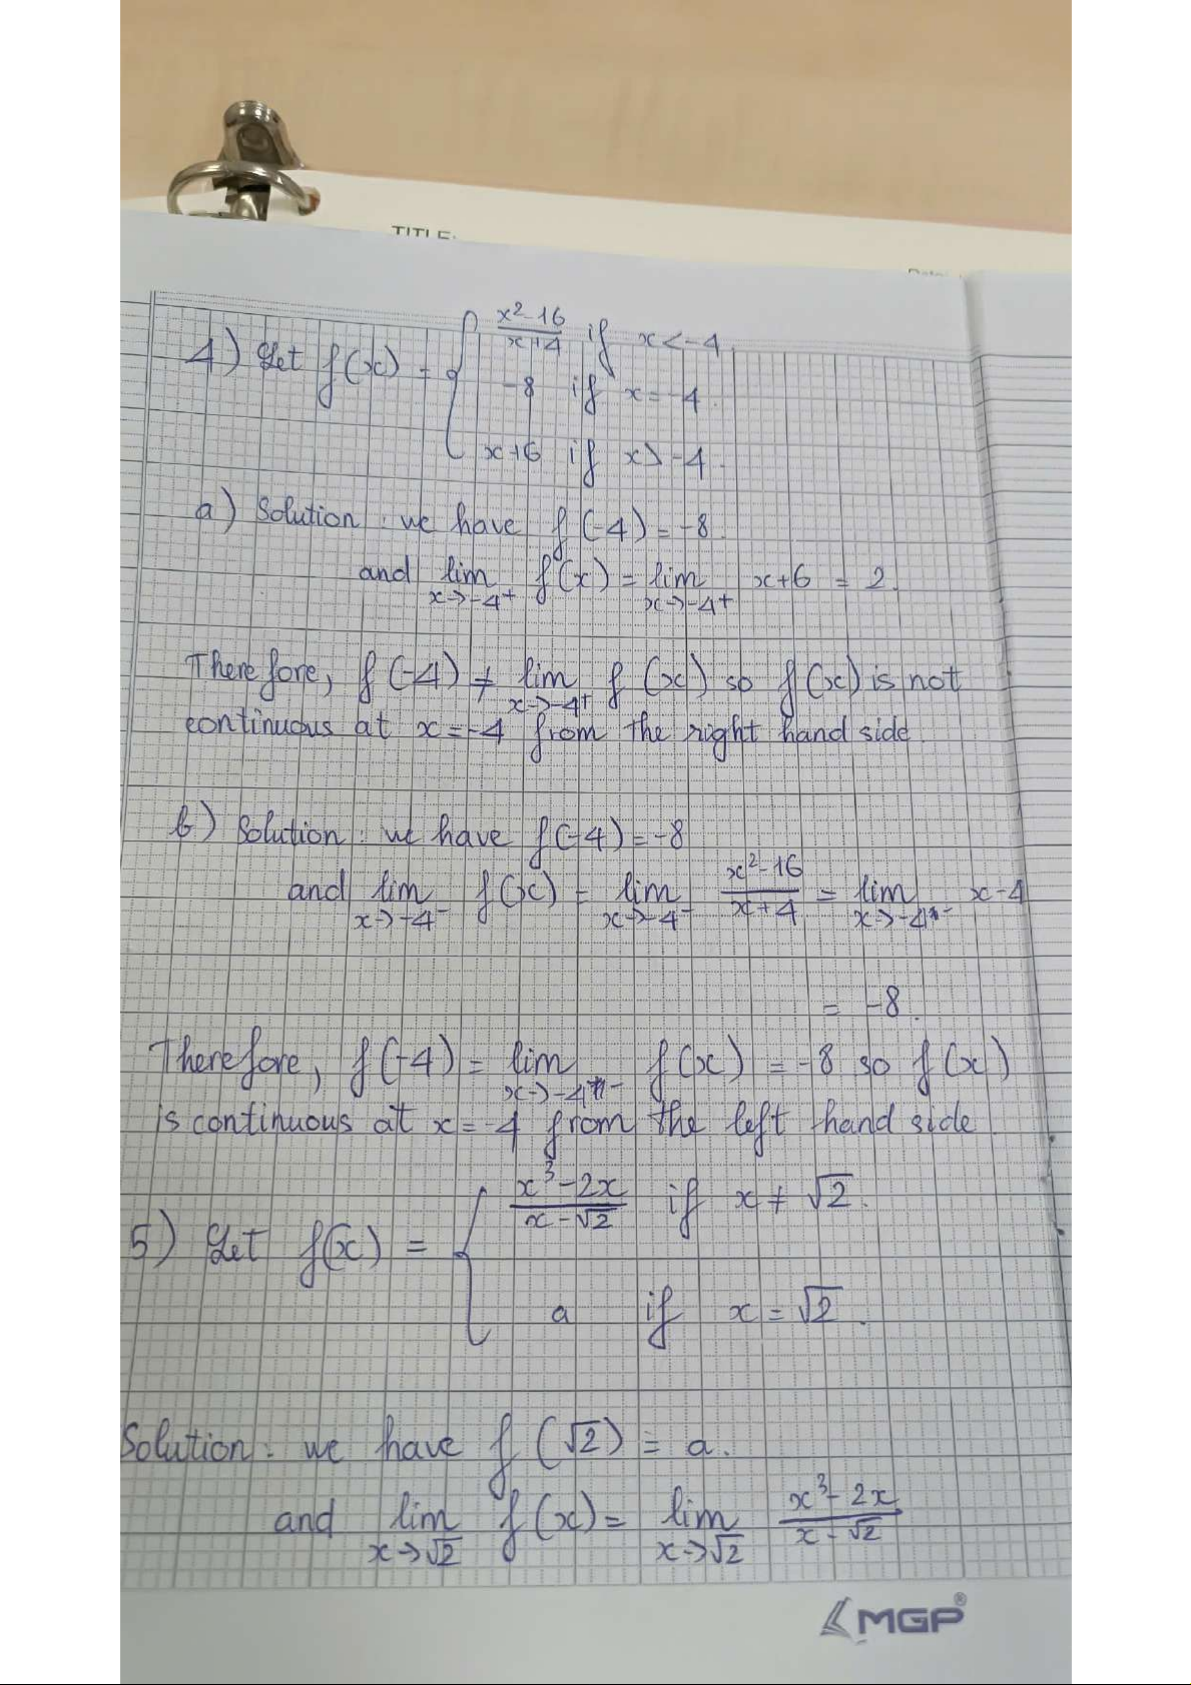 TITLE:
4) Let f(x) = { x²-16 / x+4 if x < -4.
-8 if x = -4.
x+6 if x > -4.
a) Solution: we have f(-4) = -8.
and lim x→-4⁺ f(x) = lim x→-4⁺ x+6 = 2.
Therefore, f(-4) ≠ lim x→-4⁺ f(x) so f(x) is not
continuous at x = -4 from the right hand side.
b) Solution: we have f(-4) = -8
and lim x→-4⁻ f(x) = lim x→-4⁻ x²-16 / x+4 = lim x→-4⁻ x-4
= -8.
Therefore, f(-4) = lim x→-4⁻ f(x) = -8 so f(x)
is continuous at x = -4 from the left hand side.
5) Let f(x) = { x³-2x / x-√2 if x ≠ √2.
a if x = √2.
Solution: we have f(√2) = a.
and lim x→√2 f(x) = lim x→√2 x³-2x / x-√2
MGP®